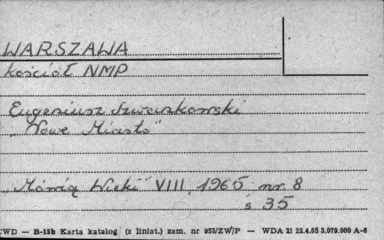 WARSZAWA
kościół NMP
Eugeniusz Szwankowski
"Nowe Miasto"
"Mówią Wieki" VIII, 1965 nr. 8
s 35
CWD — B-15b Karta katalog (z liniat.) zam. nr 957/ZW/P — WDA 21 22.4.65 3.070.000 A-6